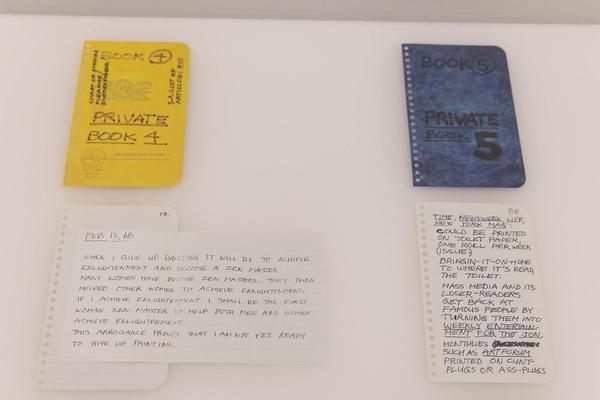 BOOK 4
CHART OF
S.A. LIST OF
ARTICLES; ETC
PRIVATE
BOOK 4
BOOK 5
PRIVATE
BOOK 5
13.
FEB 13, 68
WHEN I GIVE UP PAINTING IT WILL BE TO ACHIEVE
ENLIGHTENMENT AND BECOME A ZEN MASTER.
MANY WOMEN HAVE BECOME ZEN MASTERS, THEY THEN
HELPED OTHER WOMEN TO ACHIEVE ENLIGHTENMENT.
IF I ACHIEVE ENLIGHTENMENT I SHALL BE THE FIRST
WOMAN ZEN MASTER TO HELP BOTH MEN AND WOMEN
ACHIEVE ENLIGHTENMENT.
THIS ARROGANCE PROVES THAT I AM NOT YET READY
TO GIVE UP PAINTING.
88
TIME, NEWSWEEK, LIFE,
NEW YORK MAG:
COULD BE PRINTED
ON TOILET PAPER,
ONE ROLL PER WEEK
(ISSUE)
BRINGIN-IT-ON-HOME
TO WHERE IT'S READ
THE TOILET.
MASS MEDIA AND ITS
LOSER-READERS
GET BACK AT
FAMOUS PEOPLE BY
TURNING THEM INTO
WEEKLY ENTERTAIN-
MENT FOR THE JON.
MONTHLIES
SUCH AS ARTFORUM
PRINTED ON CUNT-
PLUGS OR ASS-PLUGS